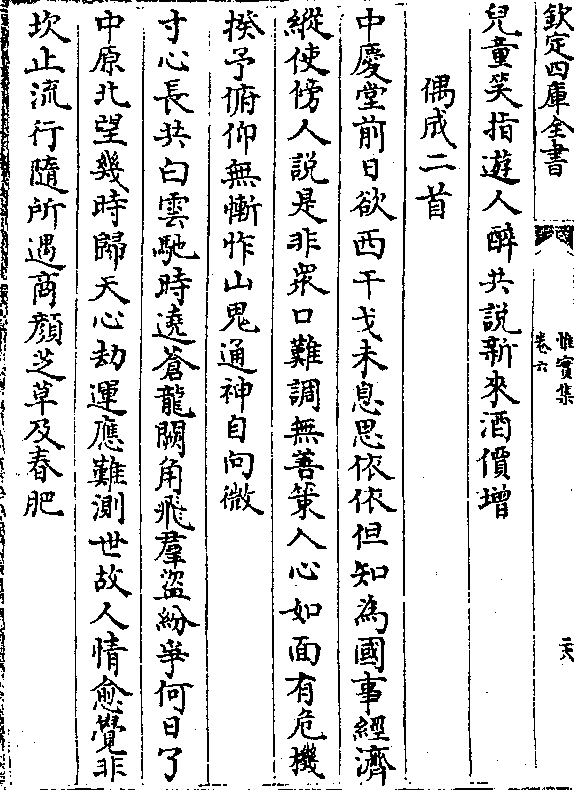 欽定四庫全書
惟實集
卷六
兒童笑指遊人醉共說新來酒價增
偶成二首
中慶堂前日欲西干戈未息思依依但知為國事經濟
縱使傍人說是非衆口難調無善策人心如面有危機
揆予俯仰無慚怍山鬼通神自向微
寸心長共白雲馳時遶蒼龍闕角飛羣盜紛爭何日了
中原北望幾時歸天心劫運應難測世故人情愈覺非
坎止流行隨所遇商顏芝草及春肥